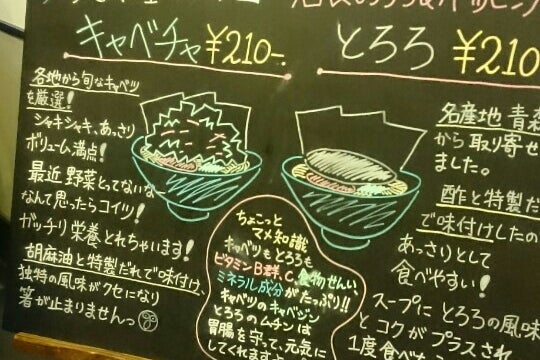 キャベチャ ¥210-
各地から旬なキャベツ
を厳選!
シャキシャキ、あっさり
ボリューム満点!
最近 野菜とってないなー
なんて思ったらコイツ!
ガッチリ 栄養 とれちゃいます!
胡麻油と特製だれで味付け、
独特の風味がクセになり
箸が止まりませんっ
とろろ ¥210
名産地 青森
から取り寄せ
ました。
酢と特製だ
で味付けしたの
あっさりとして
食べやすい!
スープに とろろの風味
とコクが プラスされ
1度食べ
ちょこっと
マメ知識
キャベツもとろろも
ビタミンB群、C、食物せんい、
ミネラル成分がたっぷり!!
キャベツのキャベジン
とろろのムチンは
胃腸を守って、元気に
してくれます